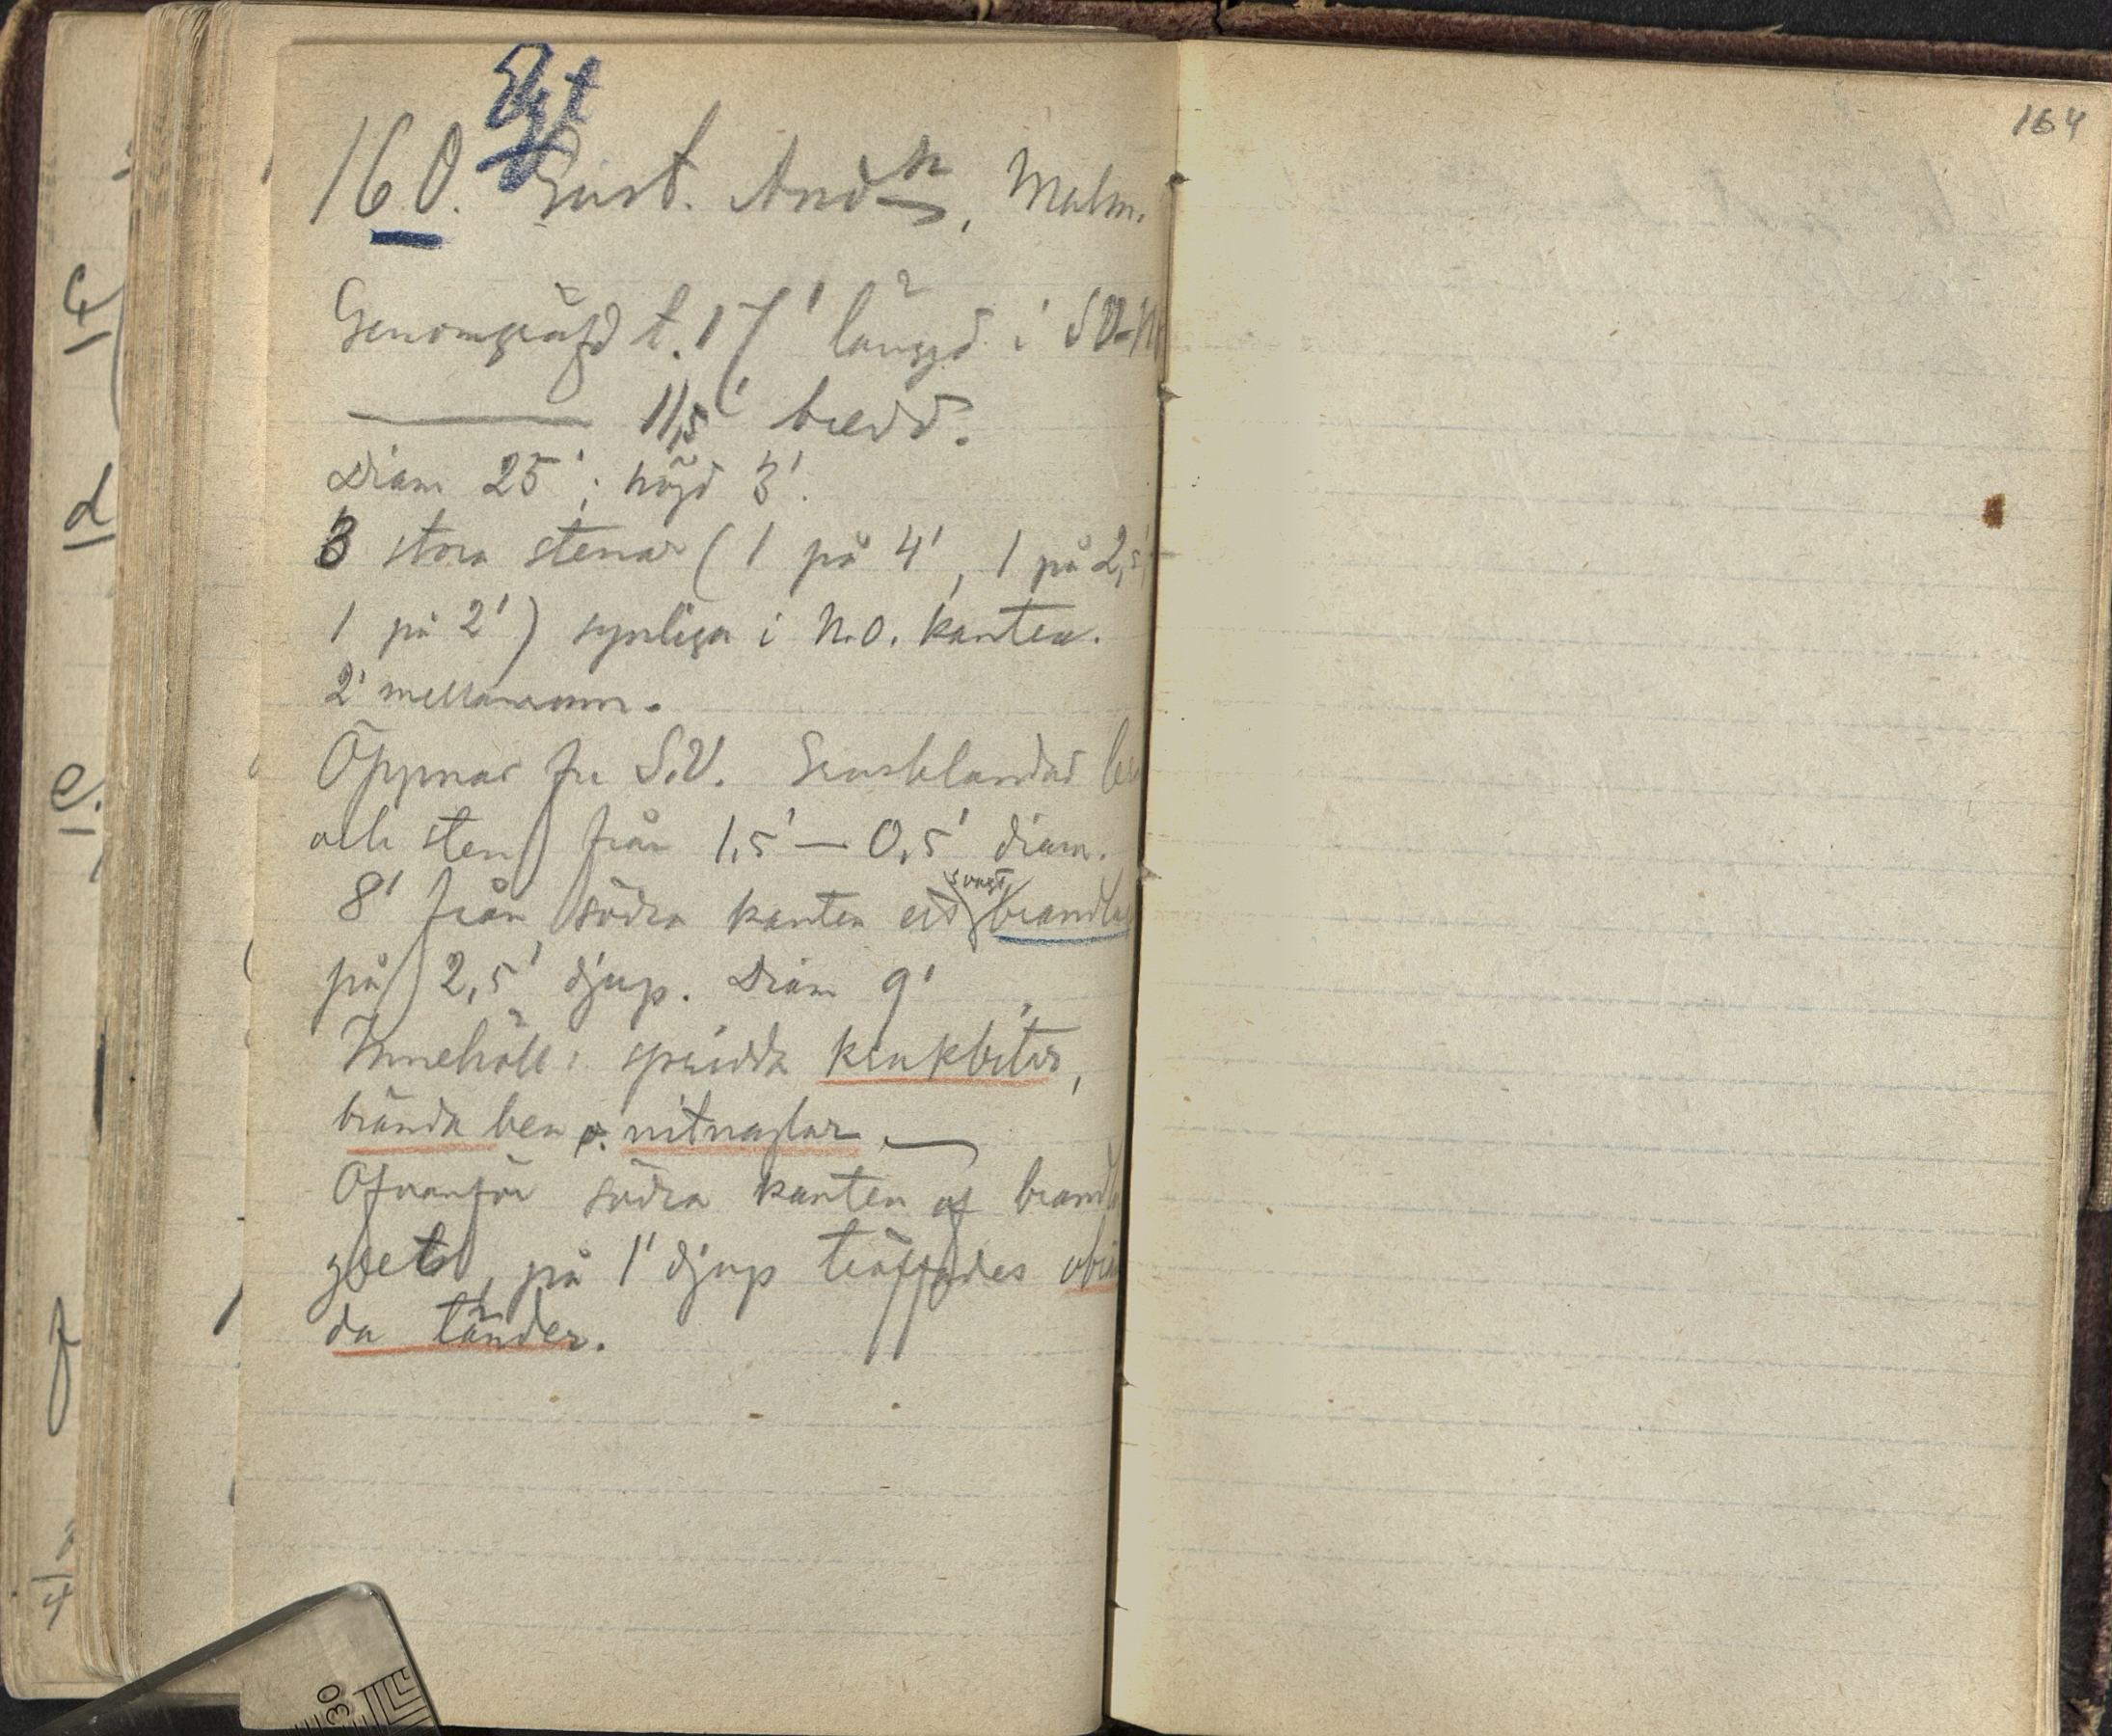 160. Gust. And<sup>n</sup>, Malm.
Genomgräfd t. 17' längd i SV-N
11,5' bredd.
Diam 25'; höjd 3'.
3 stora stenar (1 på 4', 1 på 2,5',
1 på 2') synliga i N.O. kanten.
2' mellanrum.
Öppnad fr S.V. Grusblandad
och sten från 1,5' — 0,5' diam.
8' från södra kanten ett svagt brandla
på 2,5' djup. Diam 9'
Innehöll: spridda krukbitar,
brända ben o. nitnaglar. —
Ofvanför södra kanten af brandla
gret, på 1' djup träffades obrä
da tänder.
164
d
e.
f
30